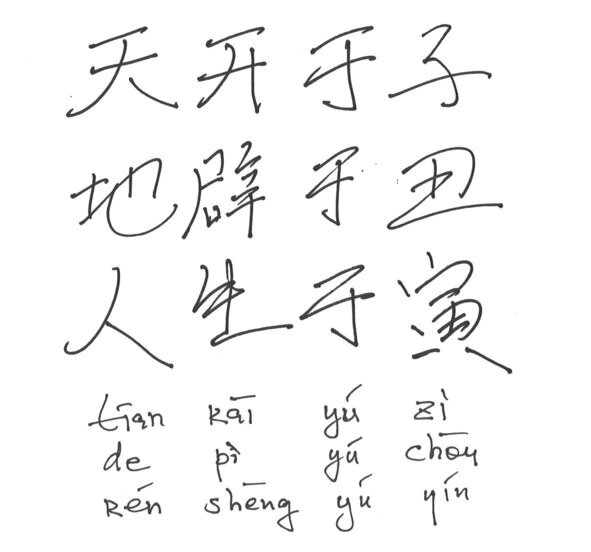 天开于子
地辟于丑
人生于寅
tīan kāi yú zì
de pì yú chōu
rén shēng yú yín